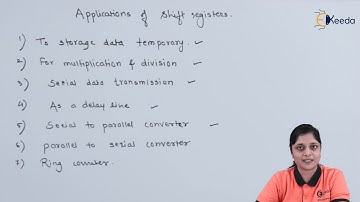 Ekeeda
Applications of Shift registers.
1) To storage data temporary. ✓
2) For multiplication & division ✓
3) Serial data transmission ✓
4) As a delay line ✓
5) Serial to parallel converter ✓
6) parallel to serial converter
7) Ring counter.